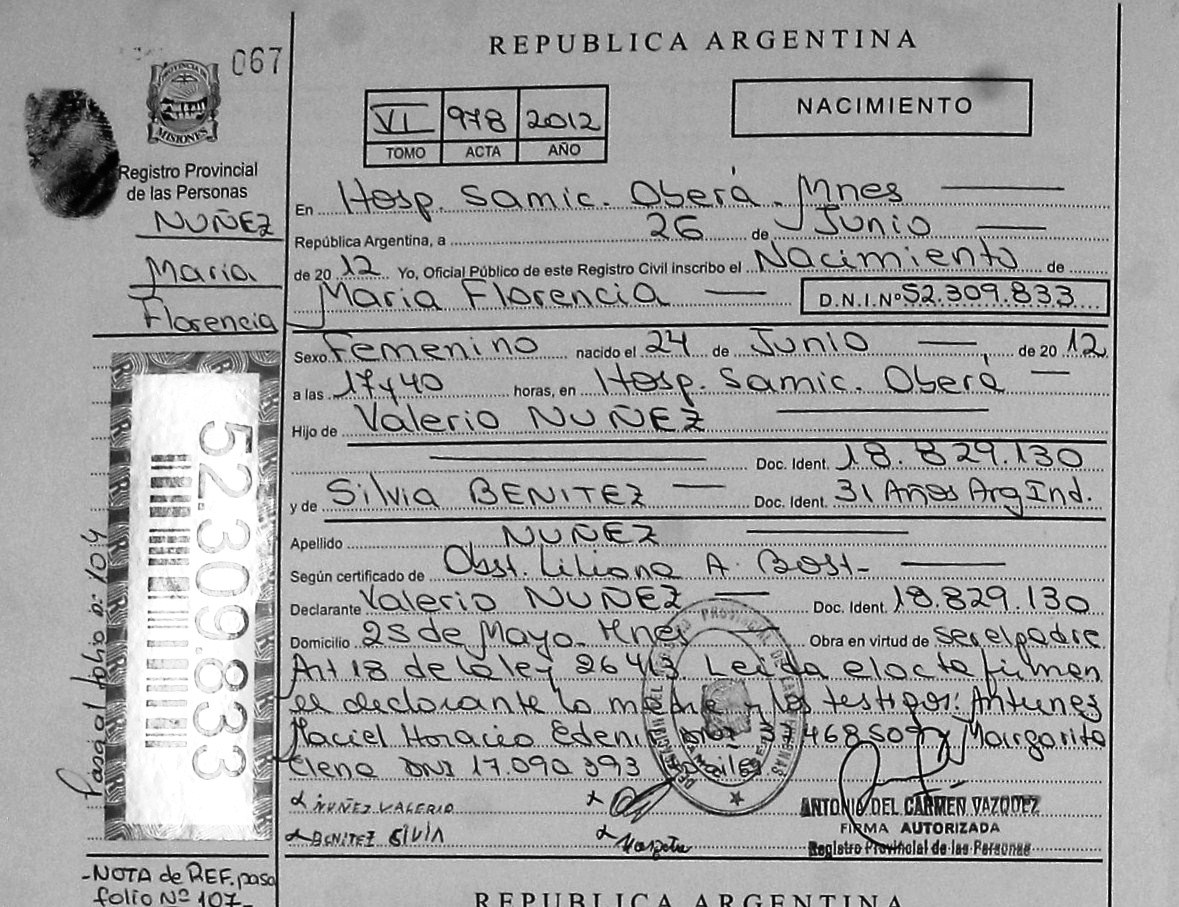 067
PROVINCIA DE
MISIONES
Registro Provincial
de las Personas
NUÑEZ
Maria
Florencia
52.309.833
Pasa al folio a: 104
-NOTA de REF. pasa
folio Nº 107-
REPUBLICA ARGENTINA
VI 978 2012
TOMO ACTA AÑO
NACIMIENTO
En Hosp. Samic. Oberá. Mnes
República Argentina, a 26 de Junio
de 2012 Yo, Oficial Público de este Registro Civil inscribo el Nacimiento de
Maria Florencia D.N.I. Nº 52.309.833
Sexo Femenino nacido el 24 de Junio, de 2012
a las 17y40 horas, en Hosp. Samic. Oberá
Hijo de Valerio NUÑEZ
Doc. Ident. 18.829.130
y de Silvia BENITEZ Doc. Ident. 31 Años Arg Ind.
Apellido NUÑEZ
Según certificado de Obst. Liliana A. Bost-
Declarante Valerio NUÑEZ Doc. Ident. 18.829.130
Domicilio 25 de Mayo- Mnes Obra en virtud de ser el padre
Art 18 de la ley 26413 Leida el acta firman
el declarante la madre y los testigos: Antunes
Maciel Horacio Eden 468509 y Margarita
Elena DNI 17.090.393
x NUÑEZ VALERIO x
x BENITEZ SILVIA x Margarita
ANTONIA DEL CARMEN VAZQUEZ
FIRMA AUTORIZADA
Registro Provincial de las Personas
REPUBLICA ARGENTINA